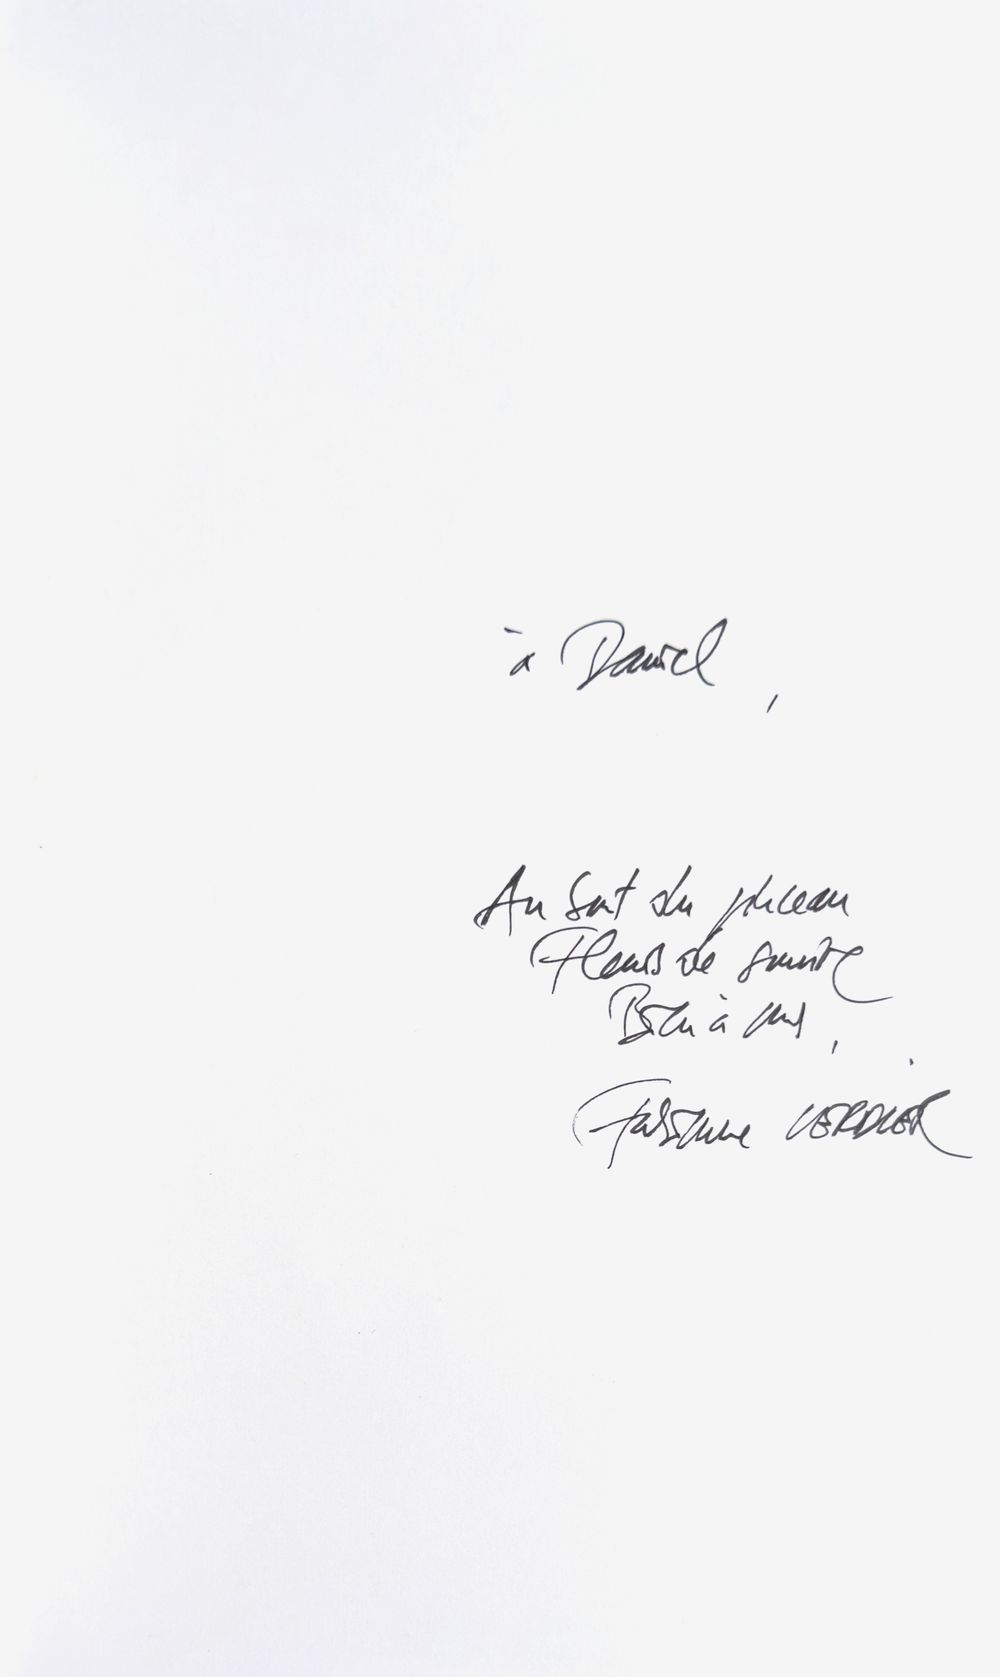 à Daniel,
Au bout du pinceau
Fleurs de
Bien à vous,
Fabienne VERDIER